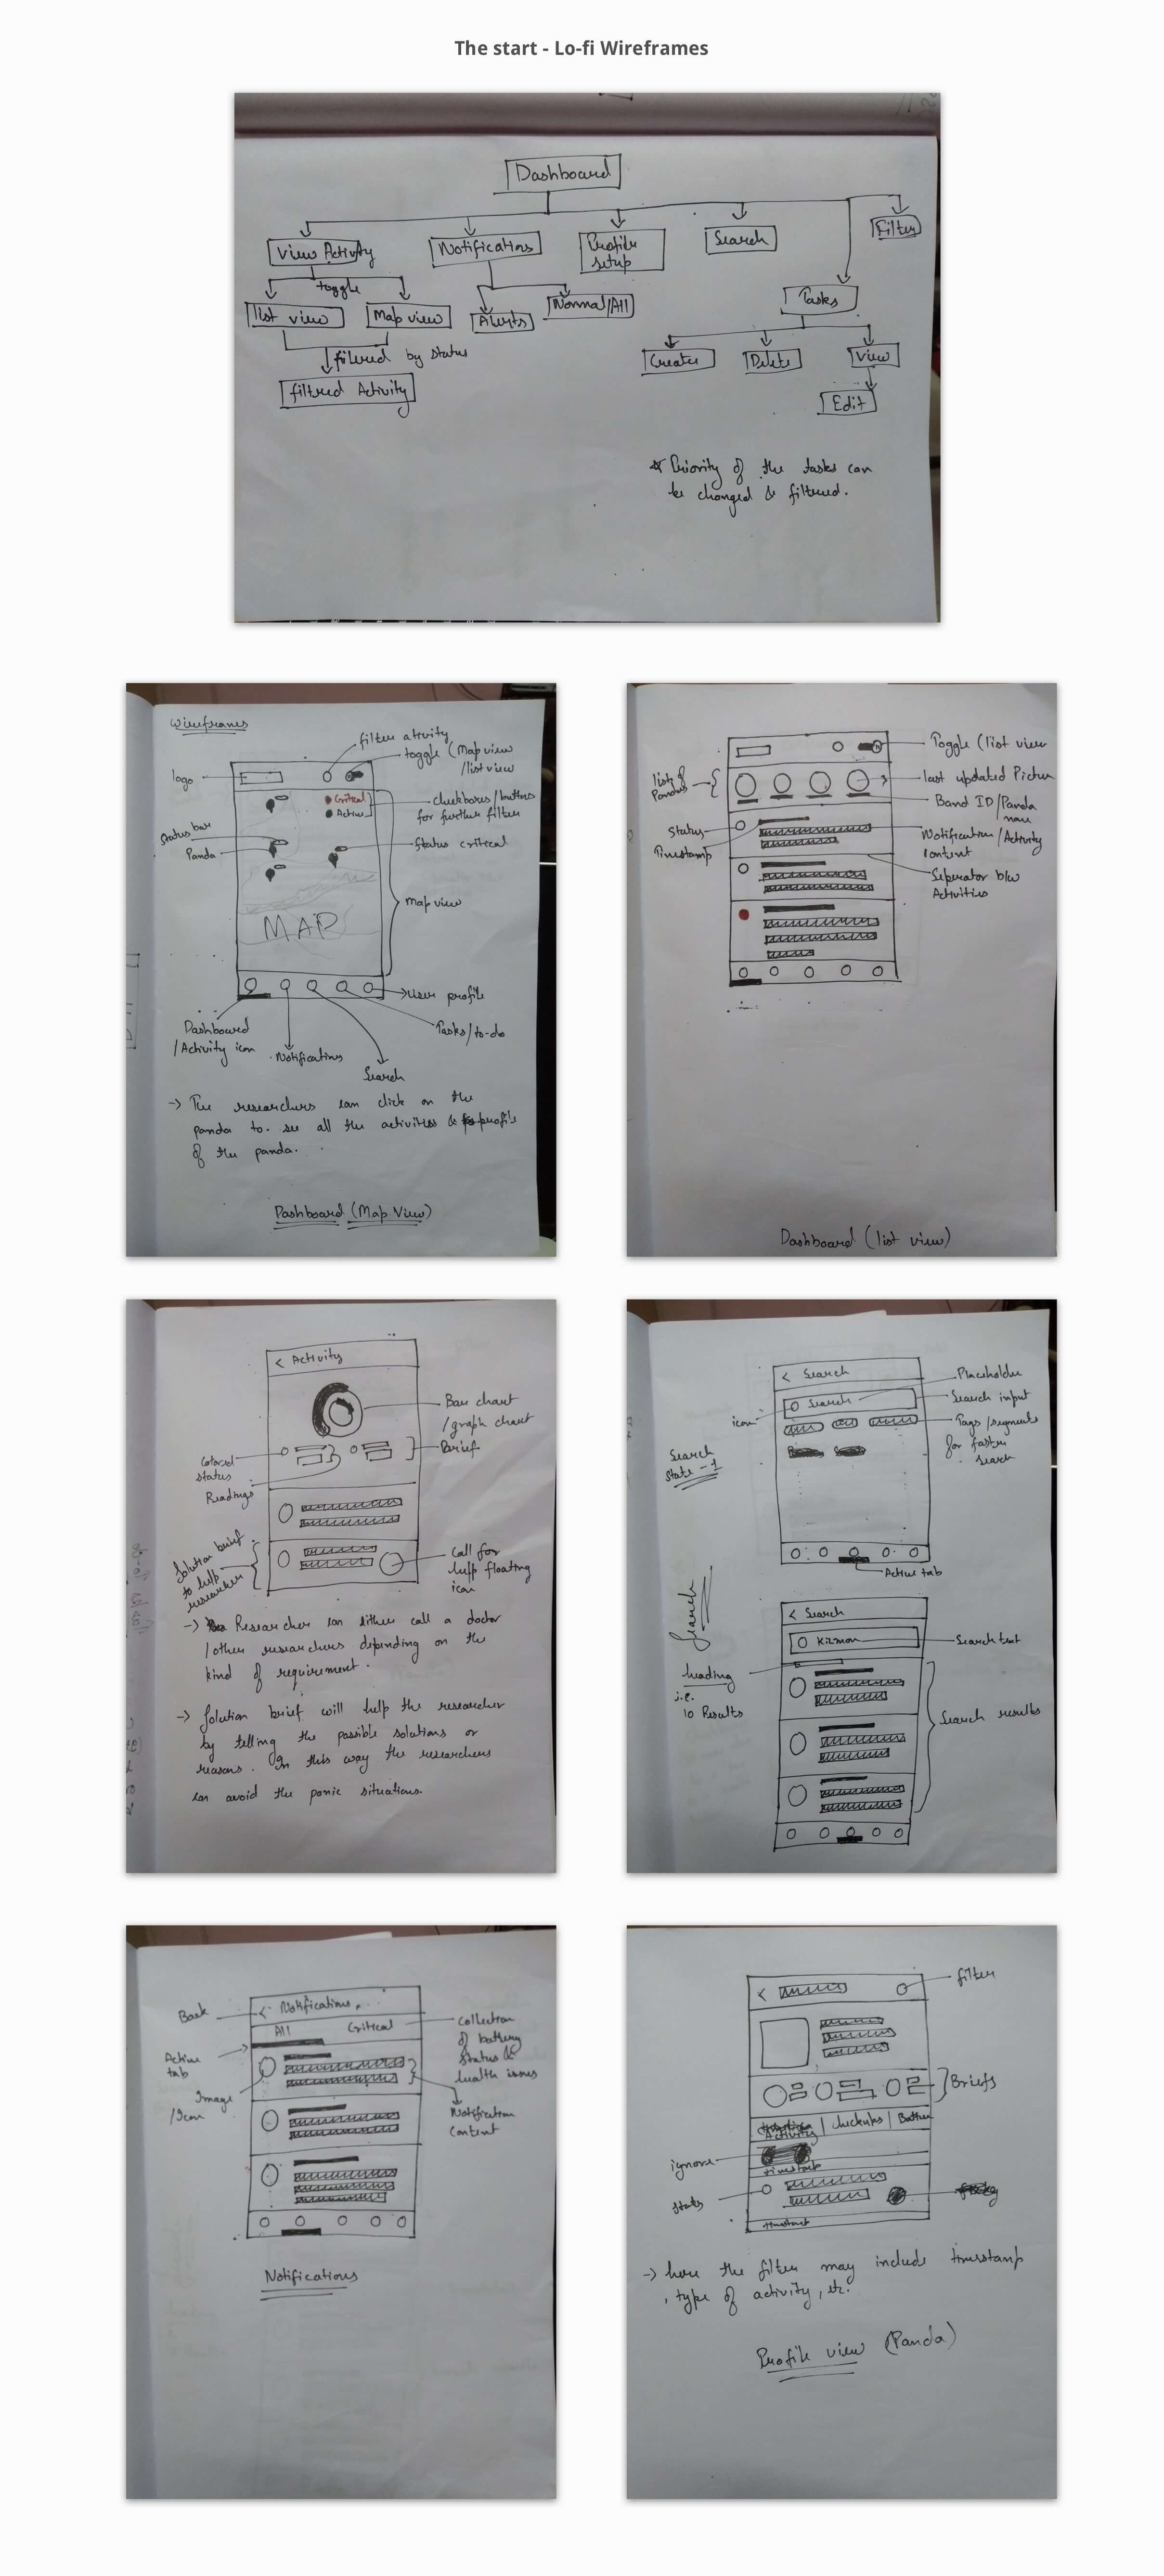 The start - Lo-fi Wireframes
Dashboard
View Activity
Notifications
Profile
setup
Search
Filter
toggle
list view
Map view
Alerts
Normal/All
Tasks
filtered by status
filtered Activity
Create
Delete
View
Edit
* Priority of the tasks can
be changed & filtered.
Wireframes
filter ativity
toggle (Map view
/list view
logo
Critical
Active
checkboxes/buttons
for further filter
Status bar
Panda
Status critical
map view
MAP
User profile
Dashboard
/Activity icon
Notifications
Tasks/to-do
Search
-> The researchers can click on the
panda to see all the activities & profile
of the panda.
Dashboard (Map View)
Toggle (list view
list of
Pandas
last updated Picture
Band ID/Panda
name
Status
Timestamp
Notification/Activity
content
Seperator b/w
Activities
Dashboard (list view)
< Activity
Bar chart
/graph chart
Colored
status
Brief
Readings
Solution brief
to help
researcher
Call for
help floating
icon
-> Researcher can either call a doctor
/other researchers depending on the
kind of requirement.
-> Solution brief will help the researcher
by telling the possible solutions or
reasons. In this way the researchers
can avoid the panic situations.
< Search
Placeholder
Search
Search input
icon
Tags/segments
for faster
search
Search
State-1
Active tab
Search
< Search
Search text
heading
i.e.
10 Results
Search results
Back
< Notifications
All
Critical
Collection
of battery
status &
health issues
Active
tab
Image
/Icon
Notification
Content
Notifications
filter
<
Briefs
Activity | Checkups |
ignore
timestamp
status
-> here the filter may include timestamp
, type of activity, etc.
Profile view (Panda)